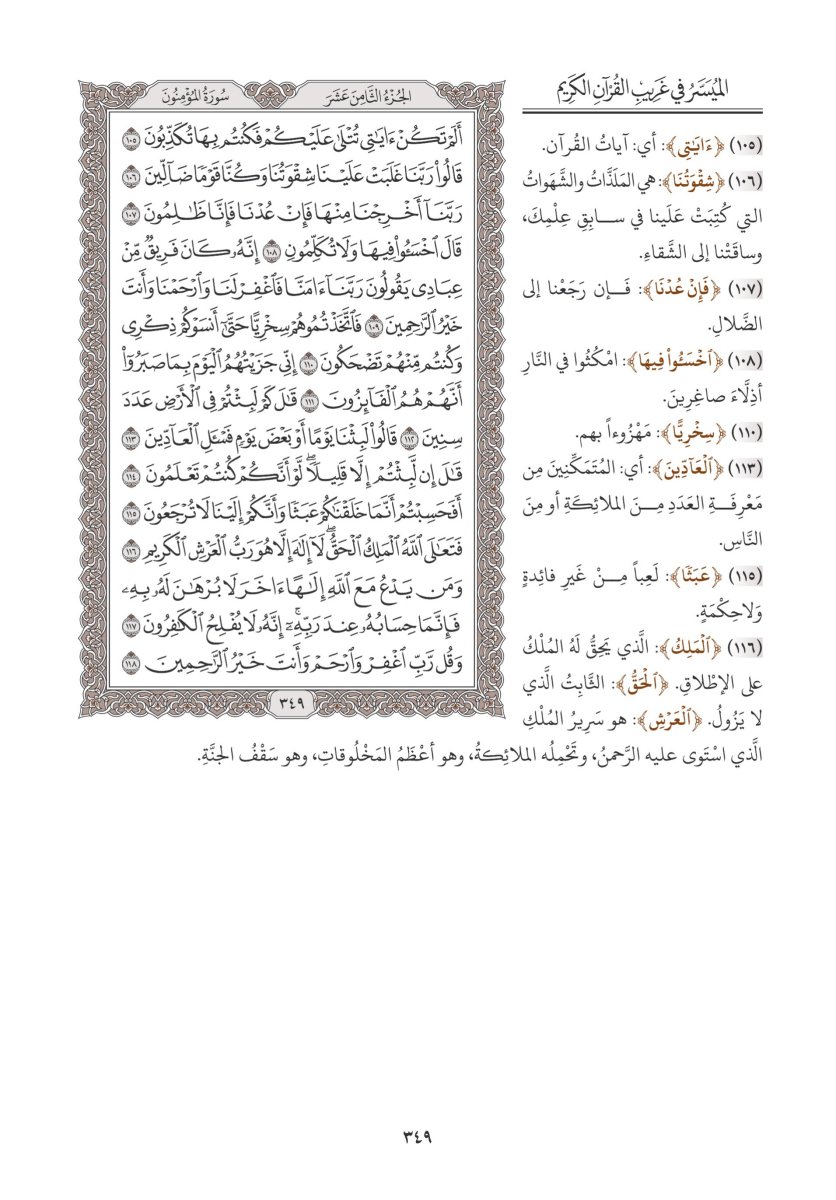 الميُسَّرُ في غَرِيبِ القُرْآنِ الكَرِيمِ
(١٠٥) ﴿ءَايَٰتِى﴾: أي: آياتُ القُرآن.
(١٠٦) ﴿شِقْوَتُنَا﴾: هي المَلَذَّاتُ والشَّهَواتُ
التي كُتِبَتْ عَلَينا في سـابِقِ عِلْمِكَ،
وساقَتْنا إلى الشَّقاءِ.
(١٠٧) ﴿فَإِنْ عُدْنَا﴾: فَـإن رَجَعْنا إلى
الضَّلالِ.
(١٠٨) ﴿ٱخْسَـُٔوا۟ فِيهَا﴾: امْكُثُوا في النَّارِ
أذِلَّاءَ صاغِرِينَ.
(١١٠) ﴿سِخْرِيًّا﴾: مَهْزُوءاً بهم.
(١١٣) ﴿ٱلْعَآدِّينَ﴾: أي: المُتَمَكِّنِينَ مِن
مَعْرِفَـةِ العَدَدِ مِـنَ الملائِكَةِ أو مِنَ
النَّاسِ.
(١١٥) ﴿عَبَثًا﴾: لَعِباً مِـنْ غَيرِ فائِدةٍ
وَلاحِكْمَةٍ.
(١١٦) ﴿ٱلْمَلِكُ﴾: الَّذي يَحِقُّ لَهُ المُلْكُ
على الإطْلاقِ. ﴿ٱلْحَقُّ﴾: الثَّابِتُ الَّذي
لا يَزُولُ. ﴿ٱلْعَرْشِ﴾: هو سَرِيرُ المُلْكِ
الَّذي اسْتَوى عليه الرَّحمنُ، وتَحْمِلُه الملائِكةُ، وهو أعْظَمُ المَخْلُوقاتِ، وهو سَقْفُ الجنَّةِ.
الجُزْءُ الثَّامِنَ عَشَرَ
سُورَةُ المُؤْمِنُونَ
أَلَمْ تَكُنْ ءَايَٰتِى تُتْلَىٰ عَلَيْكُمْ فَكُنتُم بِهَا تُكَذِّبُونَ ١٠٥
قَالُوا۟ رَبَّنَا غَلَبَتْ عَلَيْنَا شِقْوَتُنَا وَكُنَّا قَوْمًا ضَآلِّينَ ١٠٦
رَبَّنَآ أَخْرِجْنَا مِنْهَا فَإِنْ عُدْنَا فَإِنَّا ظَٰلِمُونَ ١٠٧
قَالَ ٱخْسَـُٔوا۟ فِيهَا وَلَا تُكَلِّمُونِ ١٠٨ إِنَّهُۥ كَانَ فَرِيقٌ مِّنْ
عِبَادِى يَقُولُونَ رَبَّنَآ ءَامَنَّا فَٱغْفِرْ لَنَا وَٱرْحَمْنَا وَأَنتَ
خَيْرُ ٱلرَّٰحِمِينَ ١٠٩ فَٱتَّخَذْتُمُوهُمْ سِخْرِيًّا حَتَّىٰٓ أَنسَوْكُمْ ذِكْرِى
وَكُنتُم مِّنْهُمْ تَضْحَكُونَ ١١٠ إِنِّى جَزَيْتُهُمُ ٱلْيَوْمَ بِمَا صَبَرُوٓا۟
أَنَّهُمْ هُمُ ٱلْفَآئِزُونَ ١١١ قَٰلَ كَمْ لَبِثْتُمْ فِى ٱلْأَرْضِ عَدَدَ
سِنِينَ ١١٢ قَالُوا۟ لَبِثْنَا يَوْمًا أَوْ بَعْضَ يَوْمٍ فَسْـَٔلِ ٱلْعَآدِّينَ ١١٣
قَٰلَ إِن لَّبِثْتُمْ إِلَّا قَلِيلًا ۖ لَّوْ أَنَّكُمْ كُنتُمْ تَعْلَمُونَ ١١٤
أَفَحَسِبْتُمْ أَنَّمَا خَلَقْنَٰكُمْ عَبَثًا وَأَنَّكُمْ إِلَيْنَا لَا تُرْجَعُونَ ١١٥
فَتَعَٰلَى ٱللَّهُ ٱلْمَلِكُ ٱلْحَقُّ ۖ لَآ إِلَٰهَ إِلَّا هُوَ رَبُّ ٱلْعَرْشِ ٱلْكَرِيمِ ١١٦
وَمَن يَدْعُ مَعَ ٱللَّهِ إِلَٰهًا ءَاخَرَ لَا بُرْهَٰنَ لَهُۥ بِهِۦ
فَإِنَّمَا حِسَابُهُۥ عِندَ رَبِّهِۦٓ ۚ إِنَّهُۥ لَا يُفْلِحُ ٱلْكَٰفِرُونَ ١١٧
وَقُل رَّبِّ ٱغْفِرْ وَٱرْحَمْ وَأَنتَ خَيْرُ ٱلرَّٰحِمِينَ ١١٨
٣٤٩
٣٤٩